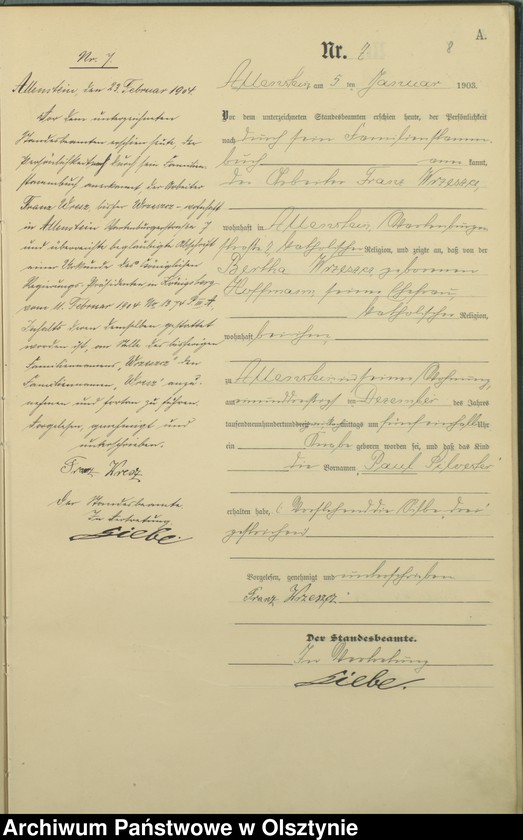 A.
Nr. 7
8
Allenstein am 5 ten Januar 1903.
Vor dem unterzeichneten Standesbeamten erschien heute, der Persönlichkeit
nach durch sein Familienstamm-
buch anerkannt,
der Arbeiter Franz Wrzesz
wohnhaft in Allenstein, Wartenburger-
straße 7 katholischer Religion, und zeigte an, daß von der
Bertha Wrzesz geborenen
Hoffmann, seiner Ehefrau,
katholischer Religion,
wohnhaft bei ihm,
zu Allenstein in seiner Wohnung,
am einunddreißigsten Dezember des Jahres
tausendneunhundert mittags um fünf einhalb Uhr
ein Knabe geboren worden sei, und daß das Kind
die Vornamen Paul Silvester
erhalten habe. (Vorstehend die Silbe "drei"
gestrichen.)
Vorgelesen, genehmigt und unterschrieben
Franz Wrzesz
Der Standesbeamte.
In Vertretung
Liebe.
Nr. 7
Allenstein, den 22. Februar 1904.
Vor dem unterzeichneten
Standesbeamten erschien heute, der
Persönlichkeit nach durch sein Familien-
stammbuch anerkannt, der Arbeiter
Franz Wresz, bisher Wrzesz - wohnhaft
in Allenstein Wartenburgerstraße 7
und überreichte beglaubigte Abschrift
einer Urkunde des Königlichen
Regierungs-Präsidenten in Königsberg
vom 11. Februar 1904
Inhalts deren demselben gestattet
worden ist, an Stelle des bisherigen
Familiennamens "Wrzesz" den
Familiennamen "Wresz" anzu-
nehmen und fortan zu führen.
Vorgelesen, genehmigt und
unterschrieben.
Franz Wresz
Der Standesbeamte.
In Vertretung
Liebe
Archiwum Państwowe w Olsztynie